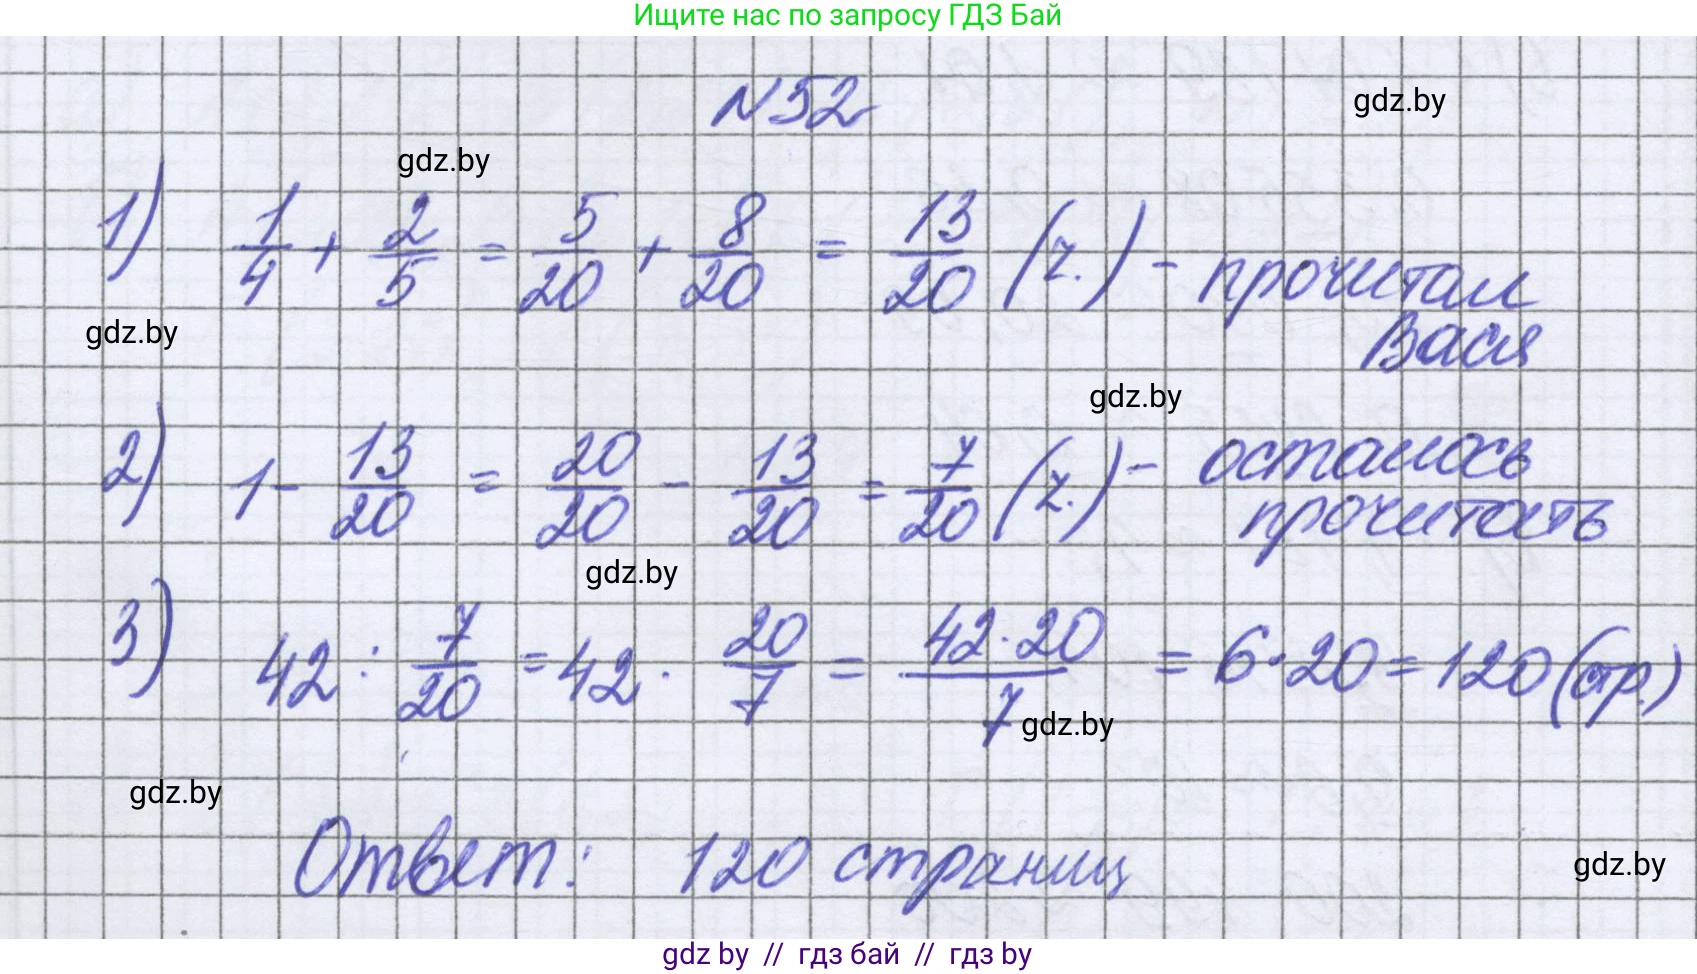 Ищите нас по запросу ГДЗ Бай
N52
gdz.by
gdz.by
1) 1/4 + 2/5 = 5/20 + 8/20 = 13/20 (ч.) - прочитал
Вася
gdz.by
gdz.by
2) 1 - 13/20 = 20/20 - 13/20 = 7/20 (ч.) - осталось
прочитать
gdz.by
3) 42 : 7/20 = 42 · 20/7 = 42·20/7 = 6·20 = 120 (стр.)
gdz.by
gdz.by
Ответ: 120 страниц
gdz.by
gdz.by // гдз бай // гдз by